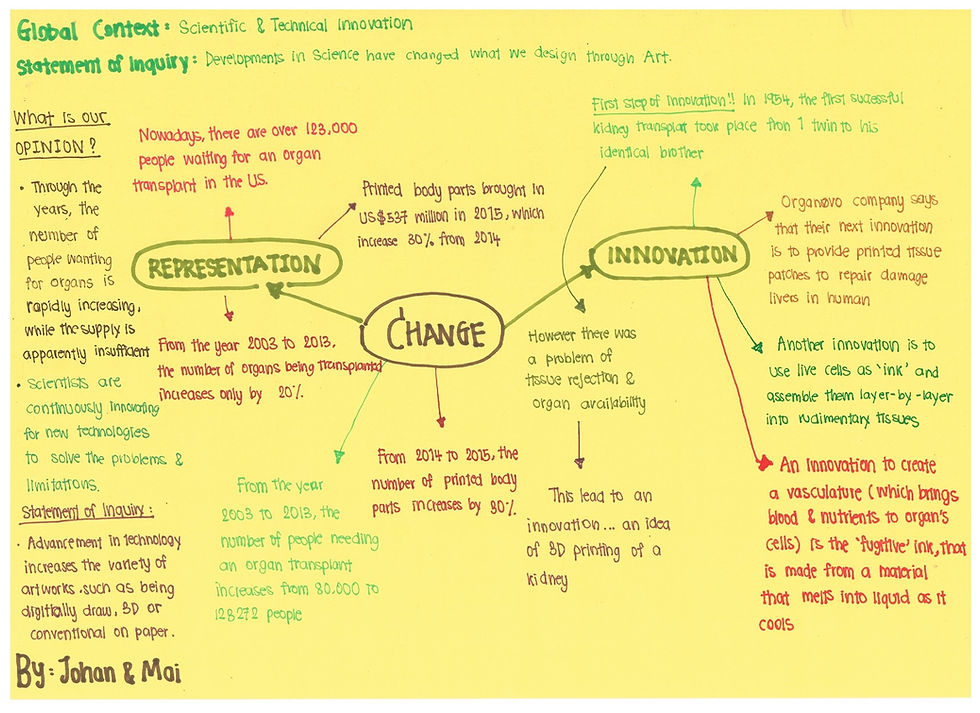 Global Context: Scientific & Technical Innovation
Statement of Inquiry: Developments in Science have changed what we design through Art.
What is our
OPINION?
• Through the
years, the
number of
people wanting
for organs is
rapidly increasing,
while the supply is
apparently insufficient
• Scientists are
continuously innovating
for new technologies
to solve the problems &
limitations.
Statement of Inquiry:
• Advancement in technology
increases the variety of
artworks. such as being
digitally draw, 3D or
conventional on paper.
By: Johan & Mai
Nowadays, there are over 123,000
people waiting for an organ
transplant in the US.
Printed body parts brought in
US$537 million in 2015, which
increase 30% from 2014
REPRESENTATION
From the year 2003 to 2013,
the number of organs being transplanted
increases only by 20%.
CHANGE
From the year
2003 to 2013, the
number of people needing
an organ transplant
increases from 80,000 to
128272 people
From 2014 to 2015, the
number of printed body
parts increases by 30%.
First step of innovation!! In 1954, the first sucessful
kidney transplat took place from 1 twin to his
identical brother
INNOVATION
However there was
a problem of
tissue rejection &
organ availability
This lead to an
innovation... an idea
of 3D printing of a
kidney
Organovo company says
that their next innovation
is to provide printed tissue
patches to repair damage
livers in human
Another innovation is to
use live cells as 'ink' and
assemble them layer-by-layer
into rudimentary tissues
An innovation to create
a vasculature (which brings
blood & nutrients to organ's
cells) is the 'fugitive' ink, that
is made from a material
that melts into liquid as it
cools